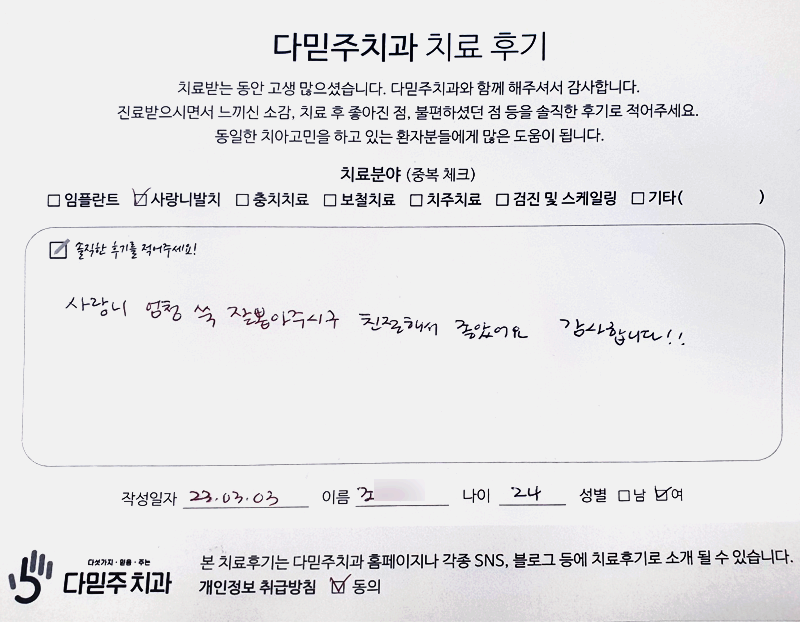 다믿주치과 치료 후기
치료받는 동안 고생 많으셨습니다. 다믿주치과와 함께 해주셔서 감사합니다.
진료받으시면서 느끼신 소감, 치료 후 좋아진 점, 불편하셨던 점 등을 솔직한 후기로 적어주세요.
동일한 치아고민을 하고 있는 환자분들에게 많은 도움이 됩니다.
치료분야 (중복 체크)
☐ 임플란트 ☑ 사랑니발치 ☐ 충치치료 ☐ 보철치료 ☐ 치주치료 ☐ 검진 및 스케일링 ☐ 기타( )
솔직한 후기를 적어주세요!
사랑니 엄청 쏙 잘뽑아주시구 친절해서 좋았어요 감사합니다!!
작성일자 23.03.03 이름 나이 24 성별 ☐남 ☑여
다섯가지·믿음·주는
다믿주치과
본 치료후기는 다믿주치과 홈페이지나 각종 SNS, 블로그 등에 치료후기로 소개 될 수 있습니다.
개인정보 취급방침 ☑ 동의